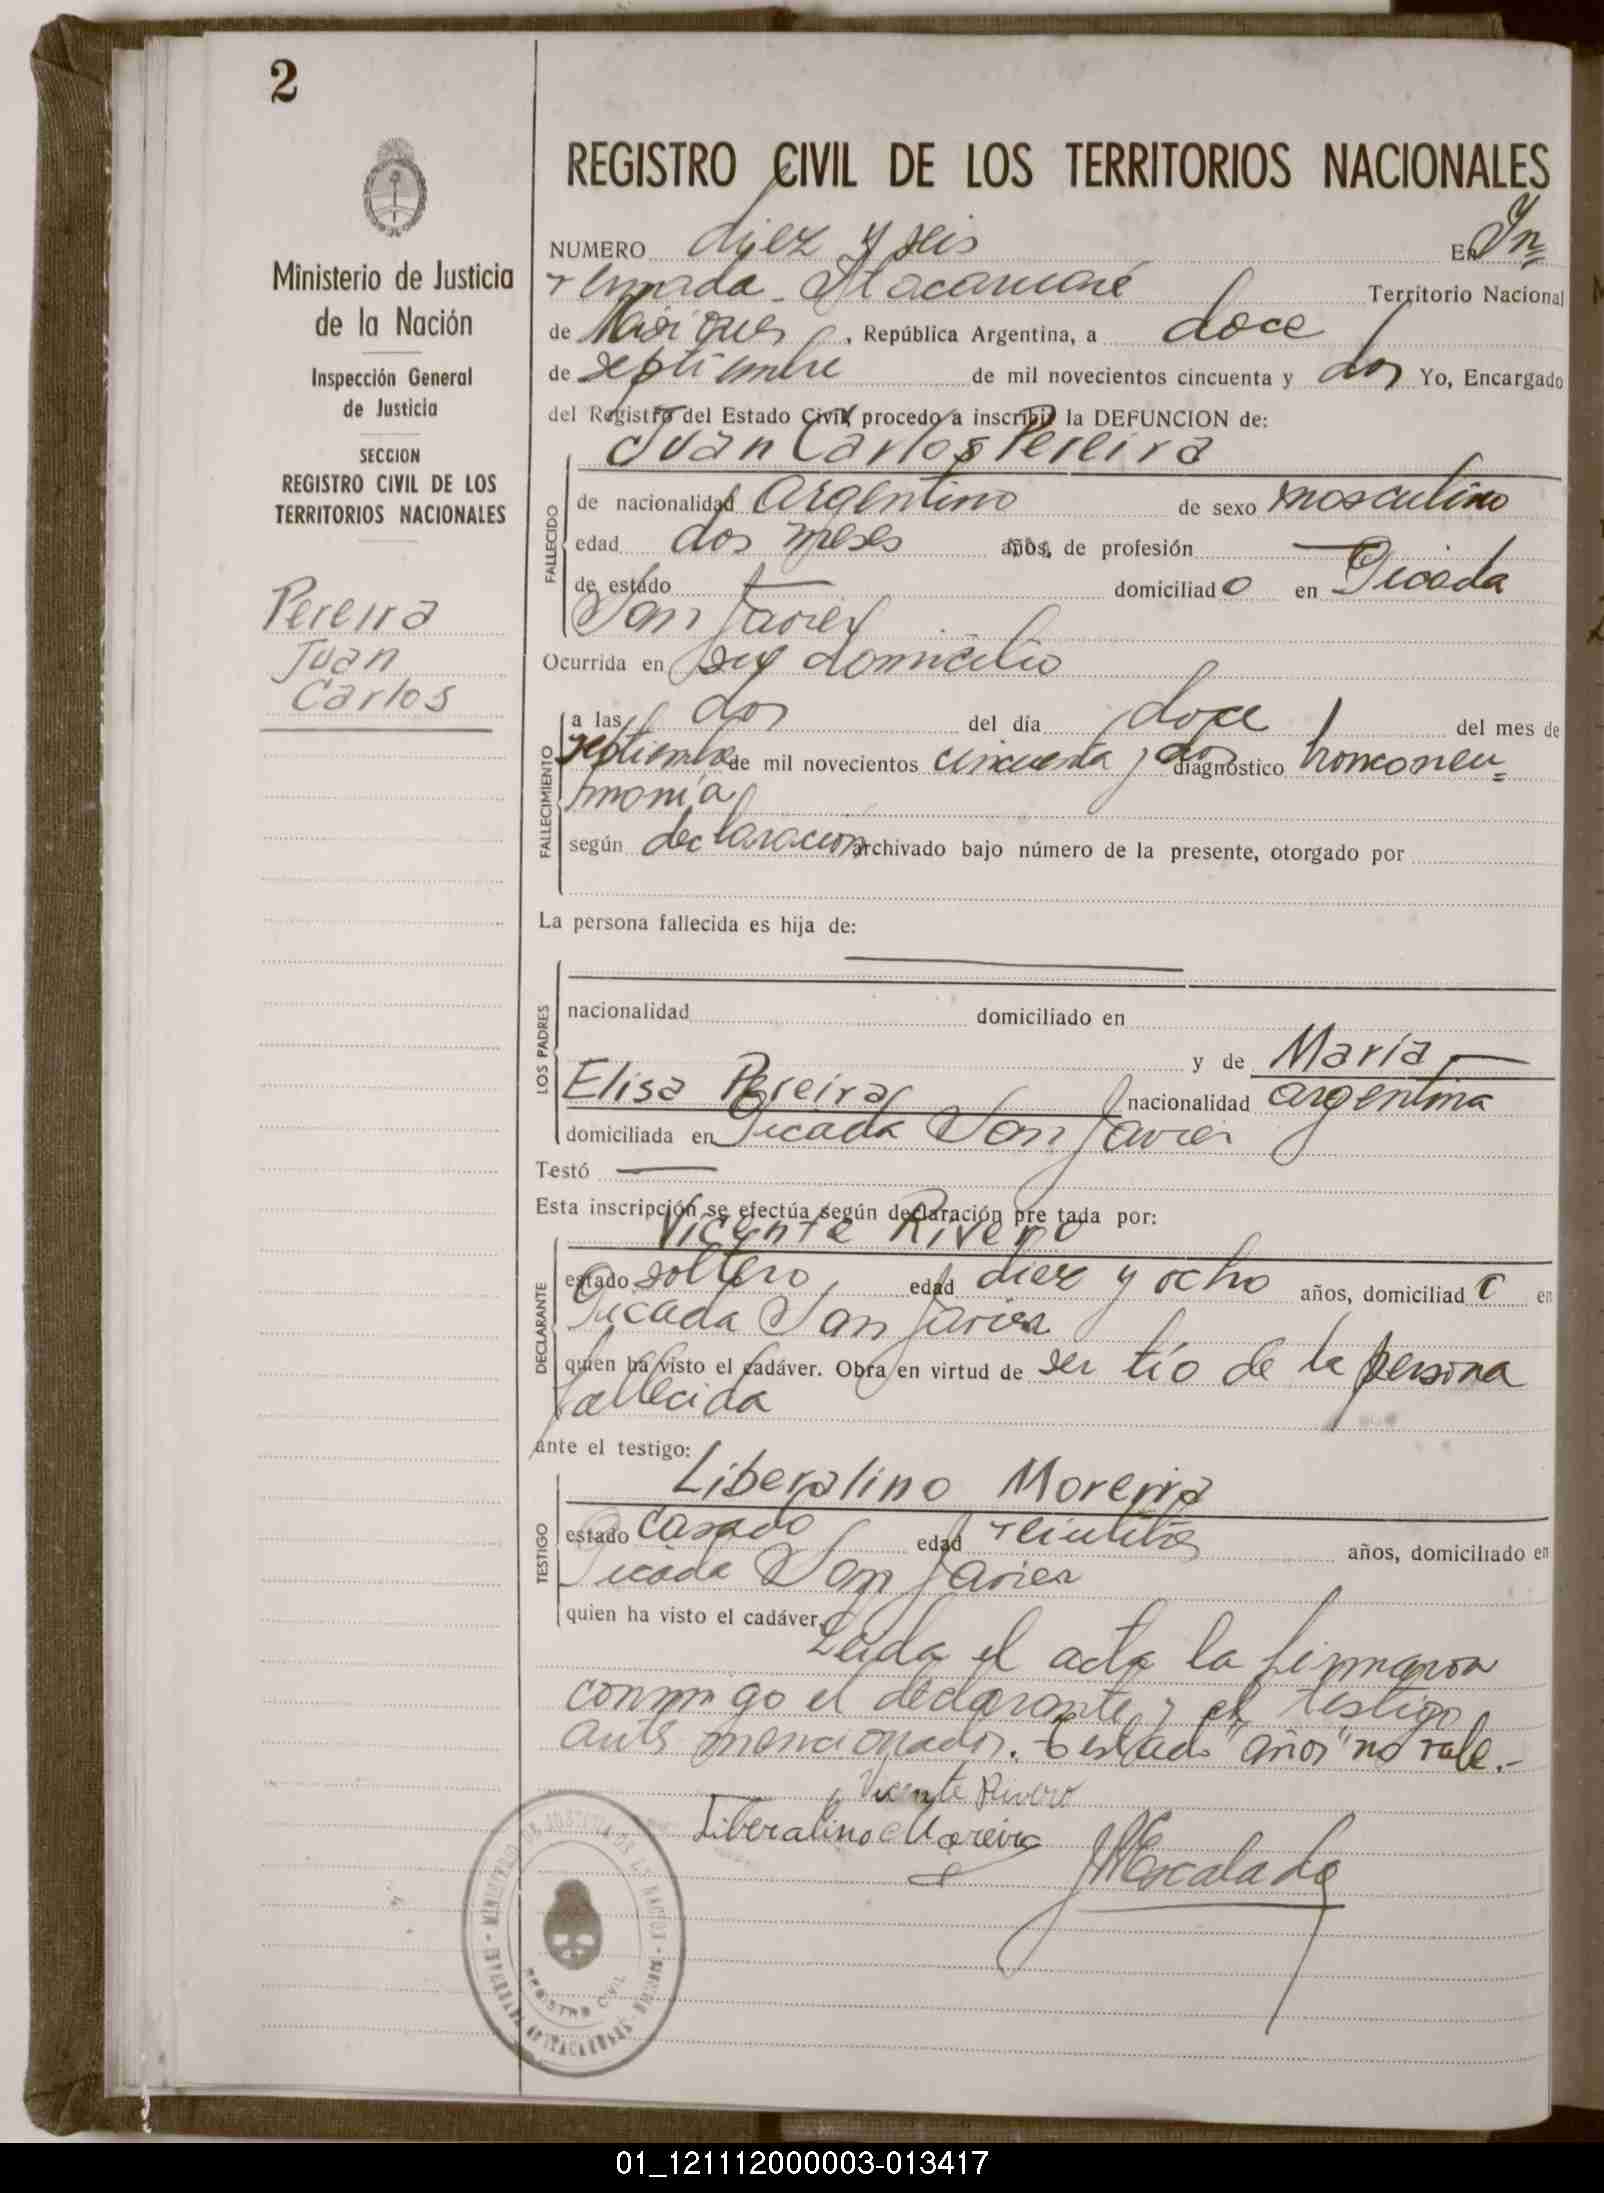 2
Ministerio de Justicia
de la Nación
Inspección General
de Justicia
SECCION
REGISTRO CIVIL DE LOS
TERRITORIOS NACIONALES
Pereira
Juan
Carlos
REGISTRO CIVIL DE LOS TERRITORIOS NACIONALES
NUMERO diez y seis En In=
vernada Itacaruaré Territorio Nacional
de Misiones, República Argentina, a doce
de septiembre de mil novecientos cincuenta y dos Yo, Encargado
del Registro del Estado Civil, procedo a inscribir la DEFUNCION de:
Juan Carlos Pereira
FALLECIDO
de nacionalidad Argentino de sexo masculino
edad dos meses años, de profesión —
de estado — domiciliado en Picada
San Javier
Ocurrida en su domicilio
FALLECIMIENTO
a las dos del día doce del mes de
septiembre de mil novecientos cincuenta y dos diagnóstico bronconeu=
monía
según declaración archivado bajo número de la presente, otorgado por
La persona fallecida es hija de:
LOS PADRES
nacionalidad domiciliado en
y de María —
Elisa Pereira nacionalidad argentina
domiciliada en Picada San Javier
Testó —
Esta inscripción se efectúa según declaración pre tada por:
Vicente Rivero
DECLARANTE
estado soltero edad diez y ocho años, domiciliado en
Picada San Javier
quien ha visto el cadáver. Obra en virtud de ser tío de la persona
fallecida
ante el testigo:
Liberalino Moreira
TESTIGO
estado casado edad años, domiciliado en
Picada San Javier
quien ha visto el cadáver.
Leida el acta la firmaron
conmigo el declarante y el testigo
antes mencionados. Testado "años" no vale.-
Vicente Rivero
Liberalino Moreira
Escalada
REGISTRO CIVIL
01_121112000003-013417